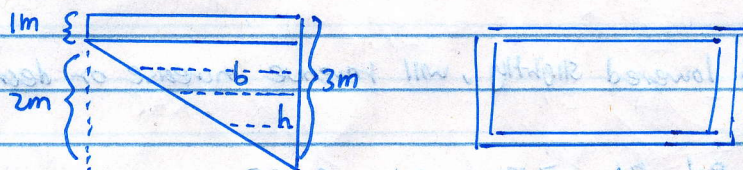 1m
2m
b
h
3m